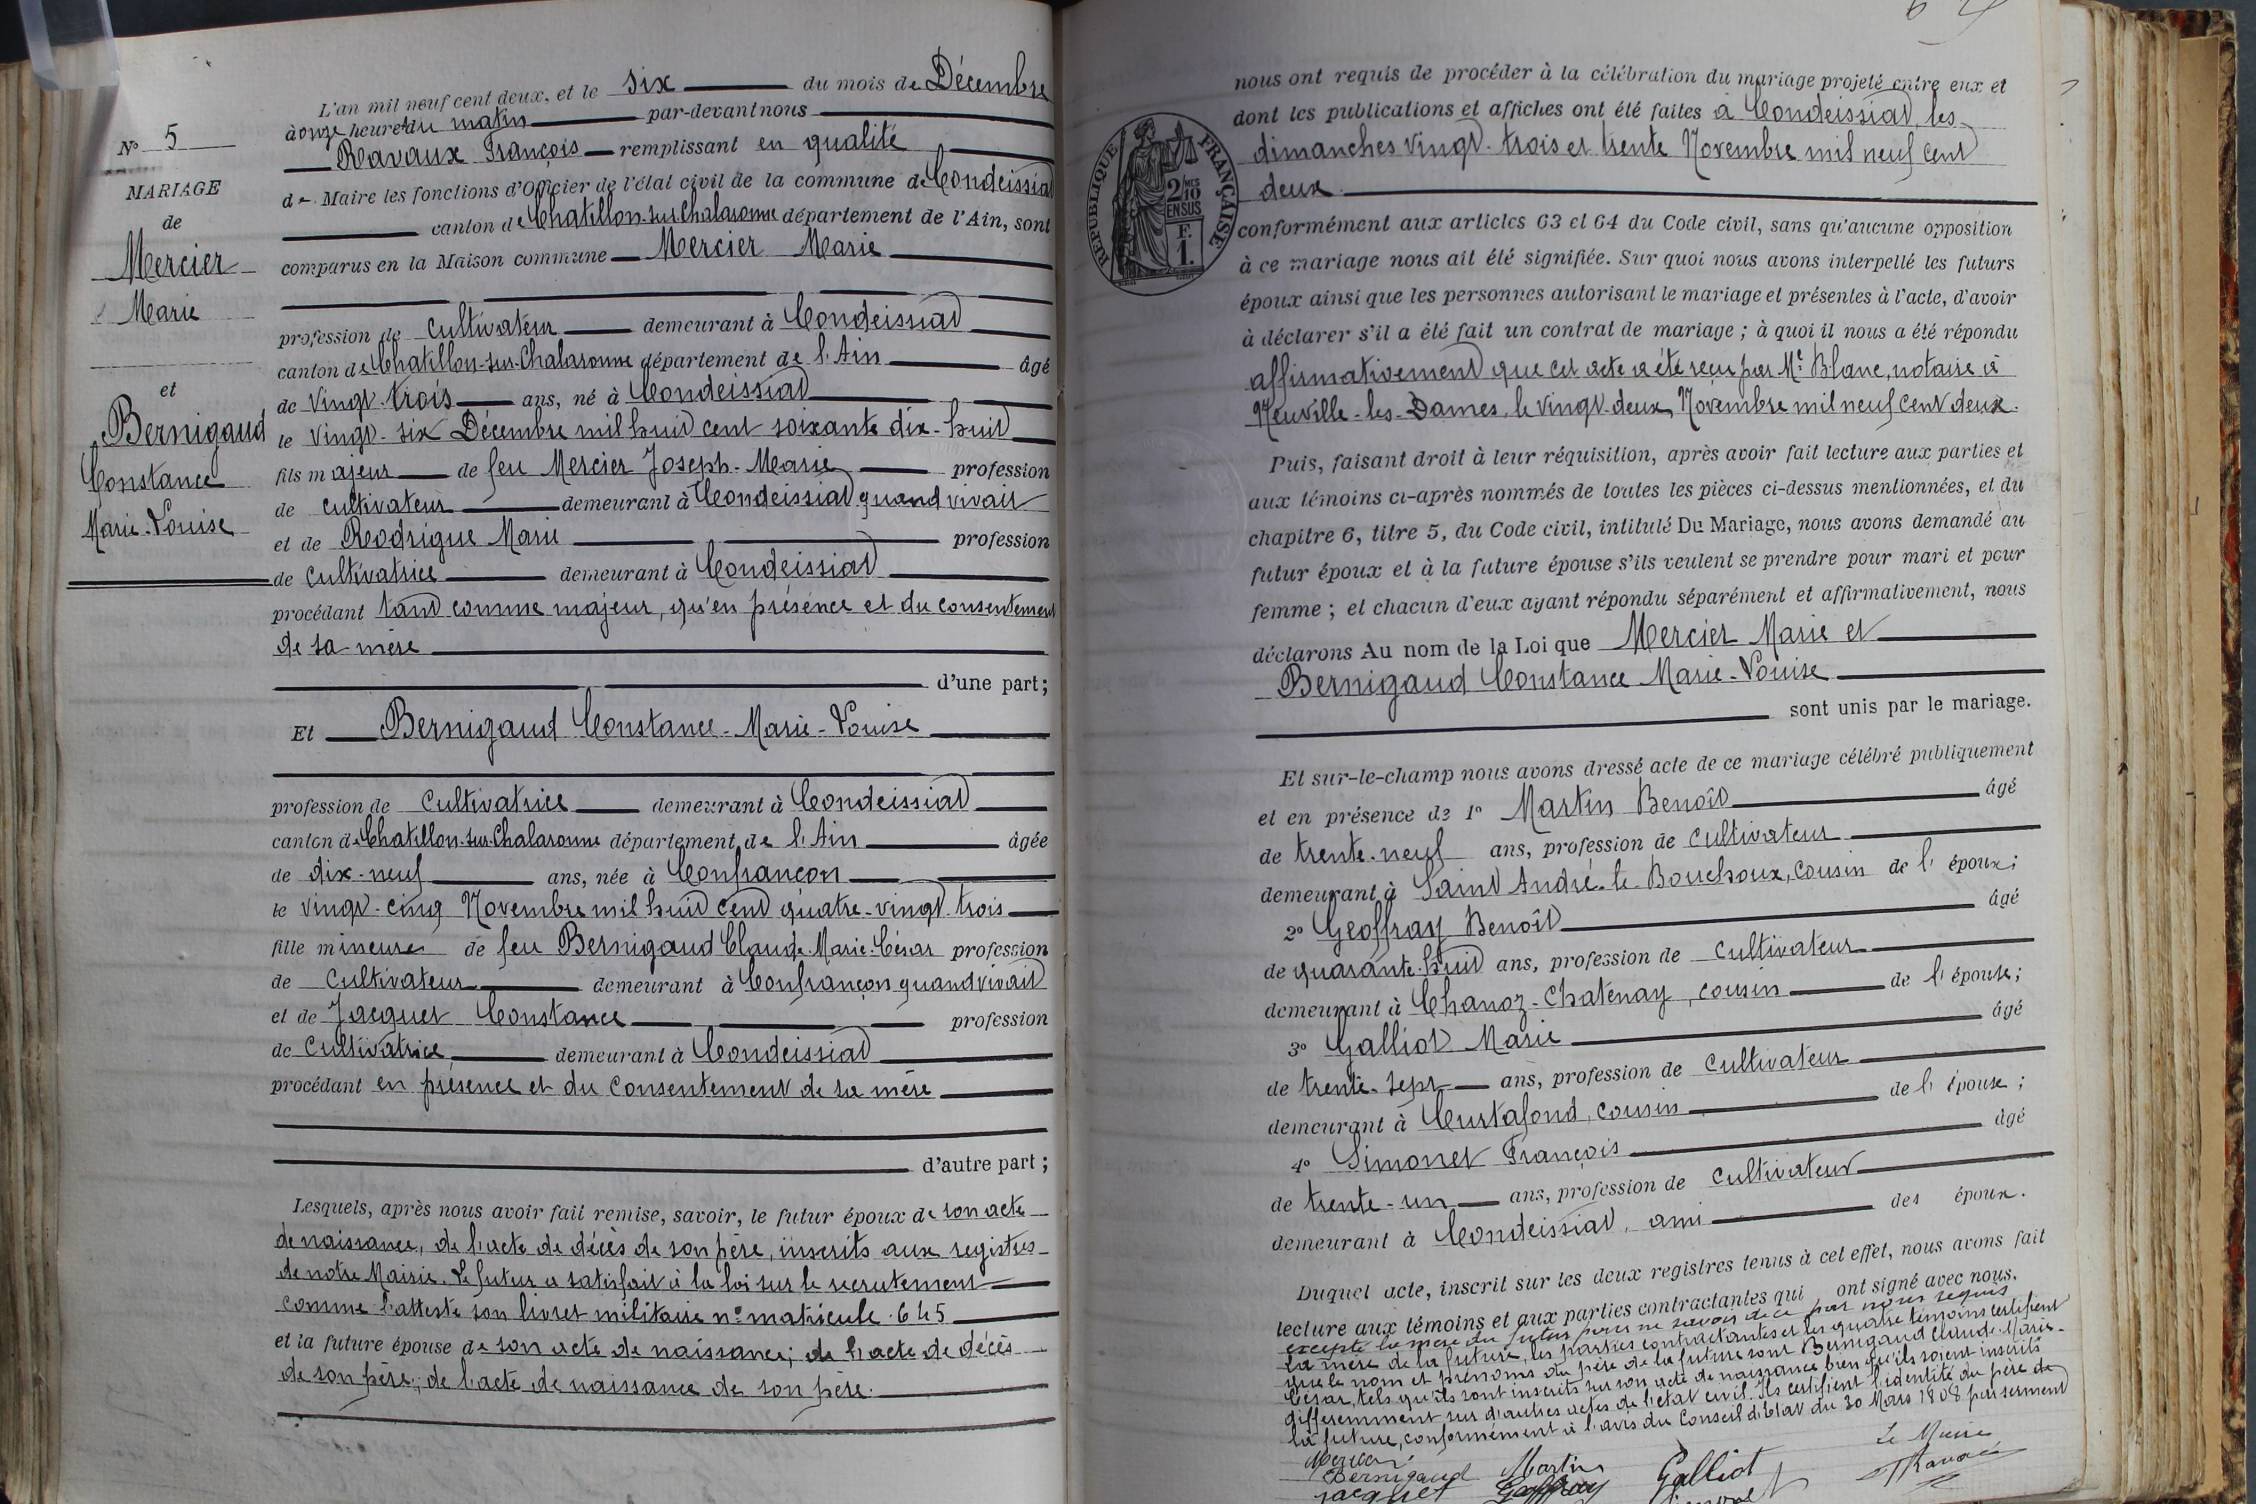 L'an mil neuf cent deux, et le six du mois de Décembre
à onze heures du matin par-devant nous
Ravaux François remplissant en qualité
de Maire les fonctions d'Officier de l'état civil de la commune de Condeissiat
canton de Chatillon-sur-Chalaronne département de l'Ain, sont
comparus en la Maison commune Mercier Marie
profession de cultivateur demeurant à Condeissiat
canton de Chatillon-sur-Chalaronne département de l'Ain âgé
de vingt-trois ans, né à Condeissiat
le vingt-six Décembre mil huit cent soixante dix-huit
fils majeur de feu Mercier Joseph-Marie profession
de cultivateur demeurant à Condeissiat quand vivait
et de Rodrigue Marie profession
de cultivatrice demeurant à Condeissiat
procédant tant comme majeur, qu'en présence et du consentement
de sa mère
d'une part;
Et Bernigaud Constance-Marie-Louise
profession de cultivatrice demeurant à Condeissiat
canton de Chatillon-sur-Chalaronne département de l'Ain âgée
de dix-neuf ans, née à Confrançon
le vingt-cinq Novembre mil huit cent quatre-vingt-trois
fille mineure de feu Bernigaud Claude-Marie-César profession
de cultivateur demeurant à Confrançon quand vivait
et de Jacquet Constance profession
de cultivatrice demeurant à Condeissiat
procédant en présence et du consentement de sa mère
d'autre part;
Lesquels, après nous avoir fait remise, savoir, le futur époux de son acte
de naissance, de l'acte de décès de son père, inscrits aux registres
de notre Mairie. Le futur a satisfait à la loi sur le recrutement
comme l'atteste son livret militaire n° matricule 645
et la future épouse de son acte de naissance; de l'acte de décès
de son père; de l'acte de naissance de son père.
N° 5
MARIAGE
de
Mercier
Marie
et
Bernigaud
Constance
Marie-Louise
nous ont requis de procéder à la célébration du mariage projeté entre eux et
dont les publications et affiches ont été faites à Condeissiat, les
dimanches vingt-trois et trente Novembre mil neuf cent
deux
RÉPUBLIQUE FRANÇAISE
2/10
EN SUS
F.
1.
conformément aux articles 63 et 64 du Code civil, sans qu'aucune opposition
à ce mariage nous ait été signifiée. Sur quoi nous avons interpellé les futurs
époux ainsi que les personnes autorisant le mariage et présentes à l'acte, d'avoir
à déclarer s'il a été fait un contrat de mariage; à quoi il nous a été répondu
affirmativement que cet acte a été reçu par Me Blanc, notaire à
Neuville-les-Dames, le vingt-deux Novembre mil neuf cent deux.
Puis, faisant droit à leur réquisition, après avoir fait lecture aux parties et
aux témoins ci-après nommés de toutes les pièces ci-dessus mentionnées, et du
chapitre 6, titre 5, du Code civil, intitulé Du Mariage, nous avons demandé au
futur époux et à la future épouse s'ils veulent se prendre pour mari et pour
femme; et chacun d'eux ayant répondu séparément et affirmativement, nous
déclarons Au nom de la Loi que Mercier Marie et
Bernigaud Constance Marie-Louise
sont unis par le mariage.
Et sur-le-champ nous avons dressé acte de ce mariage célébré publiquement
et en présence de 1° Martin Benoît âgé
de trente-neuf ans, profession de cultivateur
demeurant à Saint André-le-Bouchoux, cousin de l'époux;
2° Geoffray Benoît âgé
de quarante-huit ans, profession de cultivateur
demeurant à Chanoz-Chatenay, cousin de l'épouse;
3° Galliot Marie âgé
de trente-sept ans, profession de cultivateur
demeurant à Curtafond, cousin de l'épouse;
4° Simonet François âgé
de trente-un ans, profession de cultivateur
demeurant à Condeissiat, ami des époux.
Duquel acte, inscrit sur les deux registres tenus à cet effet, nous avons fait
lecture aux témoins et aux parties contractantes qui ont signé avec nous.
excepté la mère du futur pour ne savoir de ce par nous requis
la mère de la future, les parties contractantes et les quatre témoins certifient
que le nom et prénoms du père de la future sont Bernigaud Claude-Marie-
César, tels qu'ils sont inscrits sur son acte de naissance bien qu'ils soient inscrits
différemment sur d'autres actes de l'état civil. Ils certifient l'identité du père de
la future, conformément à l'avis du Conseil d'Etat du 30 Mars 1808 par serment
Mercier Le Maire
Bernigaud Martin Galliot Ravaux
Jacquet Geoffray Simonet